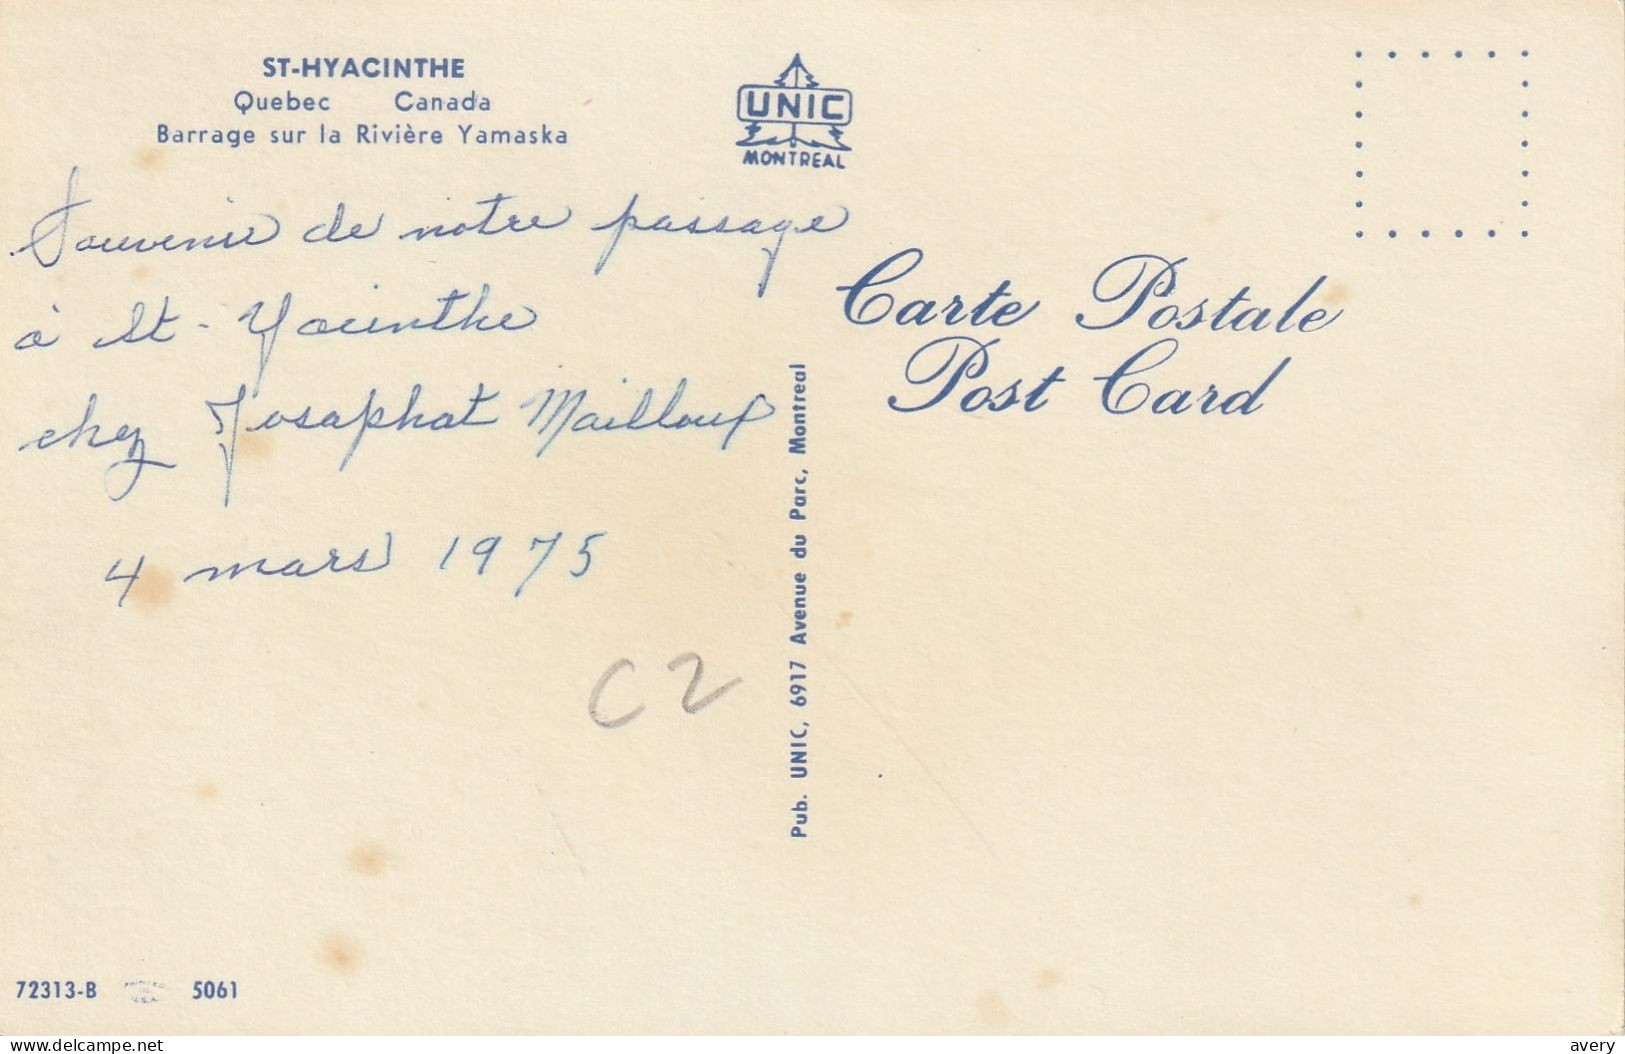 ST-HYACINTHE
Quebec Canada
Barrage sur la Rivière Yamaska
UNIC
MONTREAL
Souvenir de notre passage
à St-Yacinthe
chez Josaphat Mailloux
4 mars 1975
C2
Carte Postale
Post Card
Pub. UNIC, 6917 Avenue du Parc, Montreal
72313-B
5061
www.delcampe.net
avery